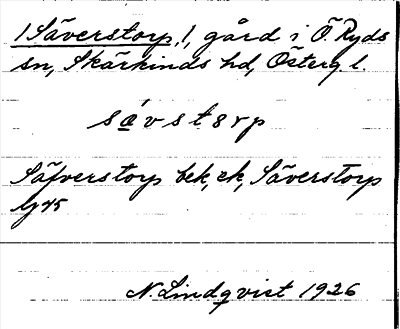 /Säverstorp,/, gård i Ö. Ryds
sn, Skärkinds hd, Österg. l.
sävstɘrp
Säfverstorp bek, ek, Säverstorp
45
N. Lindqvist 1926